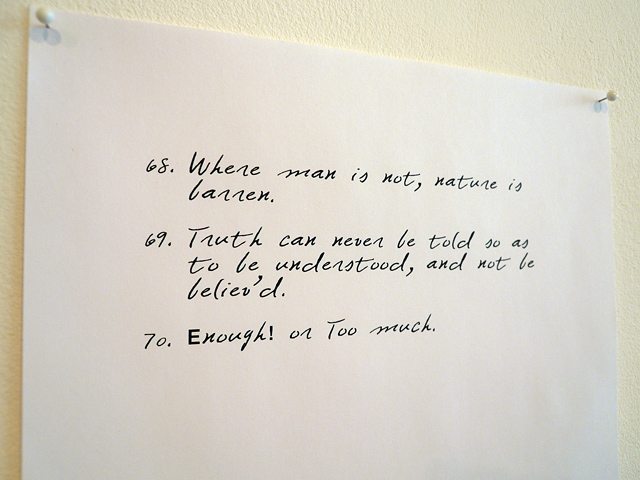 68. Where man is not, nature is
barren.
69. Truth can never be told so as
to be understood, and not be
believ'd.
70. Enough! or Too much.